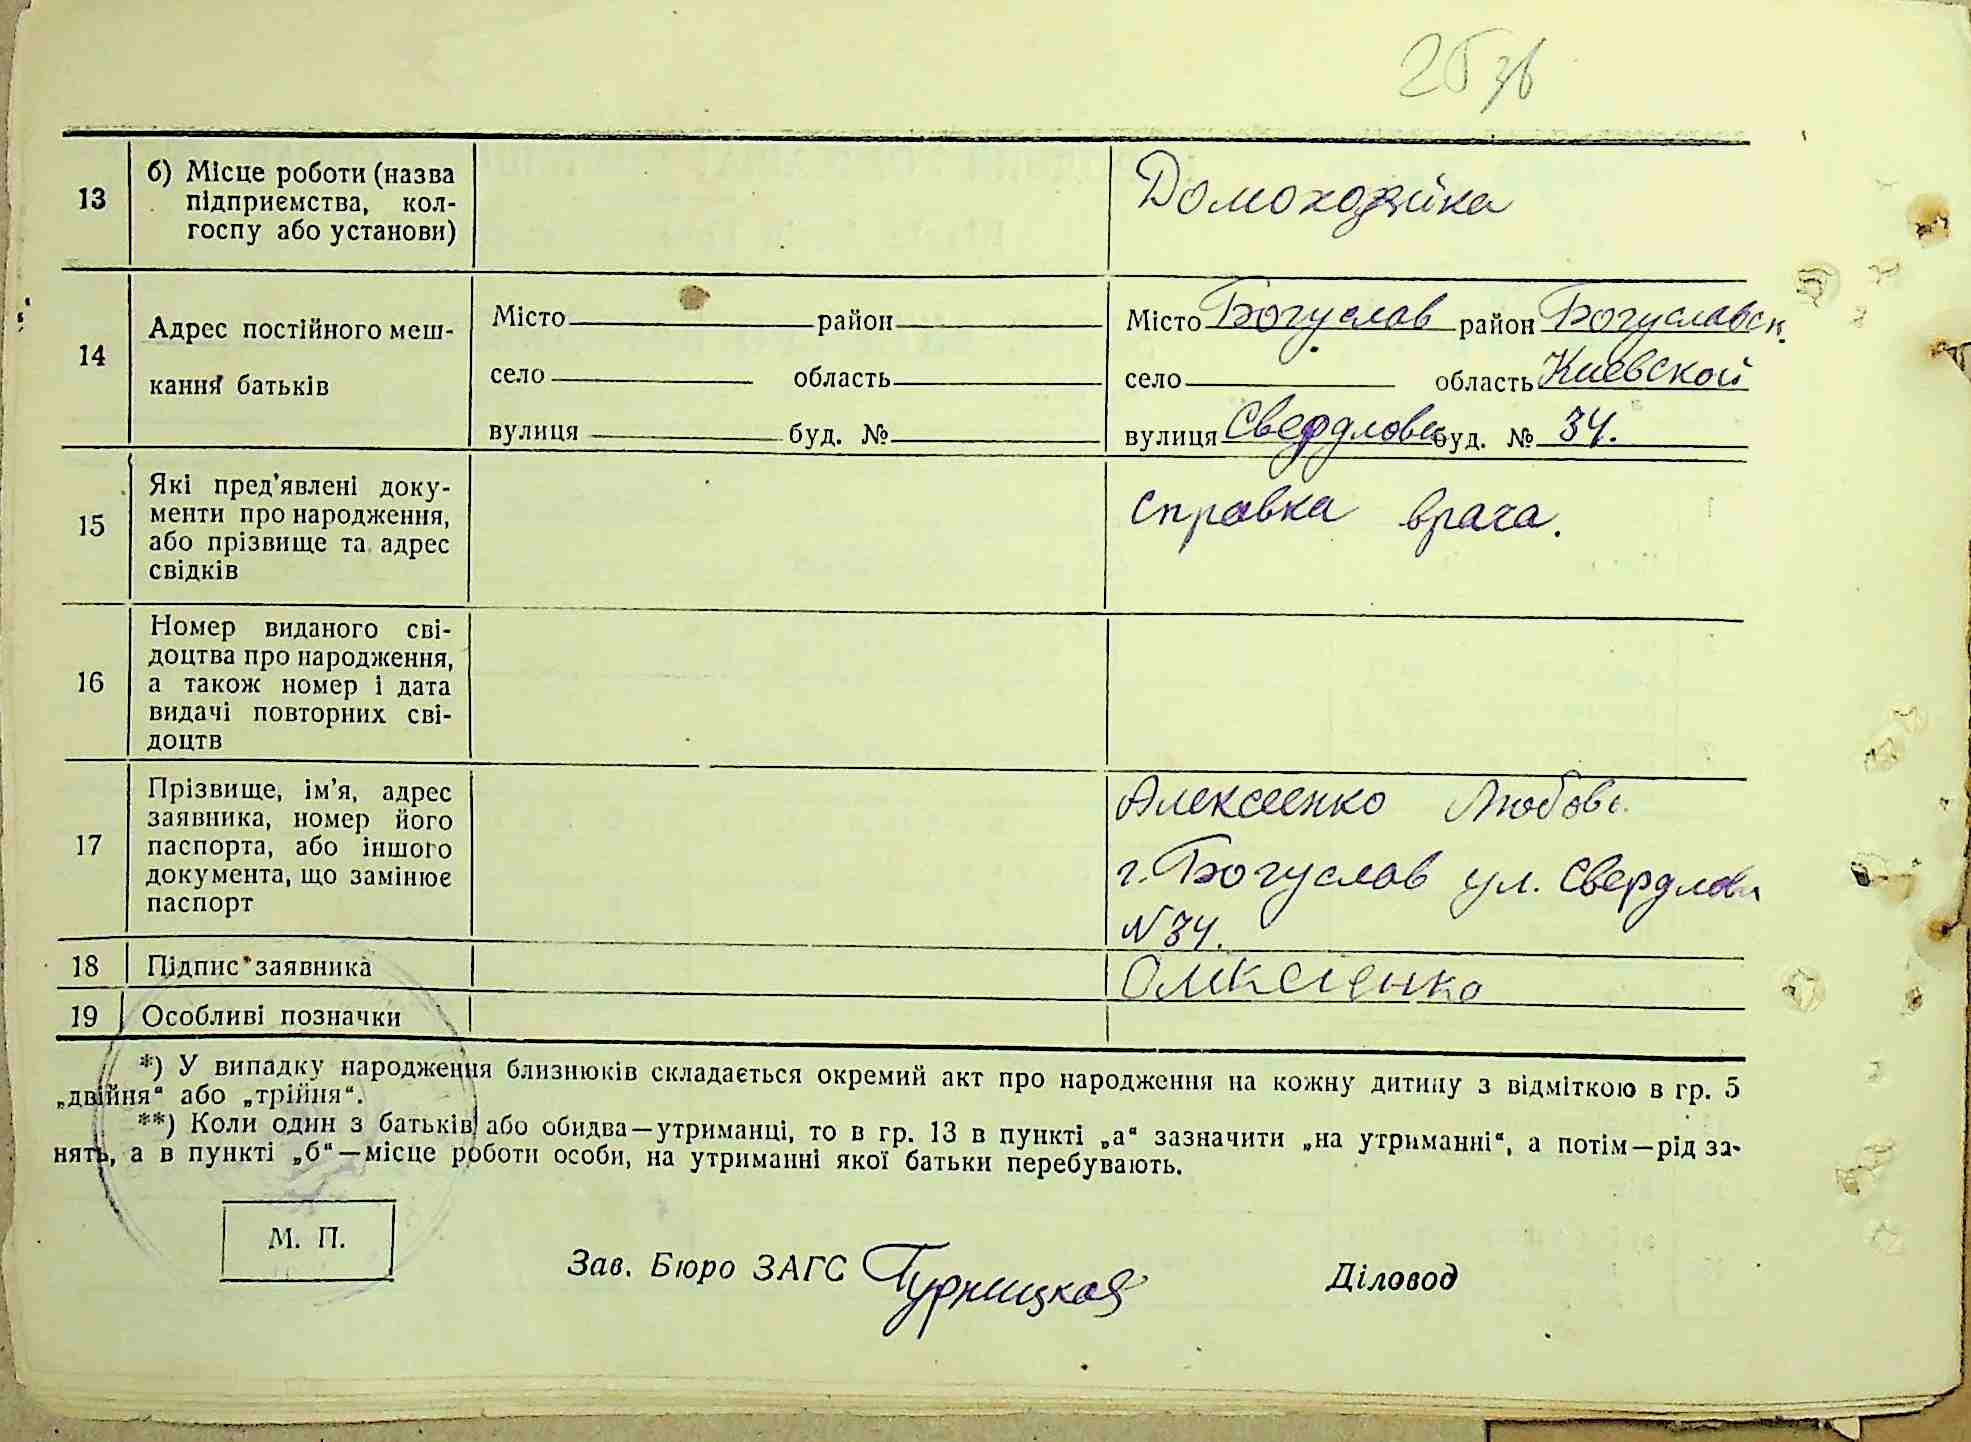 13
б) Місце роботи (назва
підприємства, кол-
госпу або установи)
Домохозяйка
14
Адрес постійного меш-
кання батьків
Місто район
село область
вулиця буд. №
Місто Богуслав район Богуславск.
село область Киевской
вулиця Свердлова буд. № 34.
15
Які пред'явлені доку-
менти про народження,
або прізвище та адрес
свідків
справка врача.
16
Номер виданого сві-
доцтва про народження,
а також номер і дата
видачі повторних сві-
доцтв
17
Прізвище, ім'я, адрес
заявника, номер його
паспорта, або іншого
документа, що замінює
паспорт
Алексеенко Любовь
г. Богуслав ул. Свердлова
N 34.
18
Підпис заявника
Олексієнко
19
Особливі позначки
*) У випадку народження близнюків складається окремий акт про народження на кожну дитину з відміткою в гр. 5
„двійня“ або „трійня“.
**) Коли один з батьків або обидва—утриманці, то в гр. 13 в пункті „а“ зазначити „на утриманні“, а потім—рід за-
нять, а в пункті „б“—місце роботи особи, на утриманні якої батьки перебувають.
М. П.
Зав. Бюро ЗАГС
Діловод